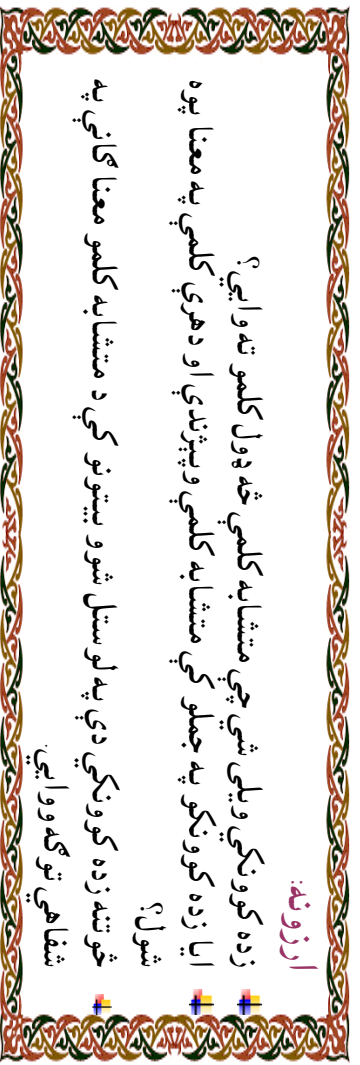 ارزونه:
زده کوونکي ويلى شي چي متشابه کلمي څه ډول کلمو ته وايي؟
ايا زده کوونکو په جملو کي متشابه کلمي وپيژندي او دهري کلمي په معنا پوه
شول؟
څوتنه زده کوونکي دي په لوستل شوو بيتونو کي د متشابه کلمو معناګاني په
شفاهي توګه ووايي.